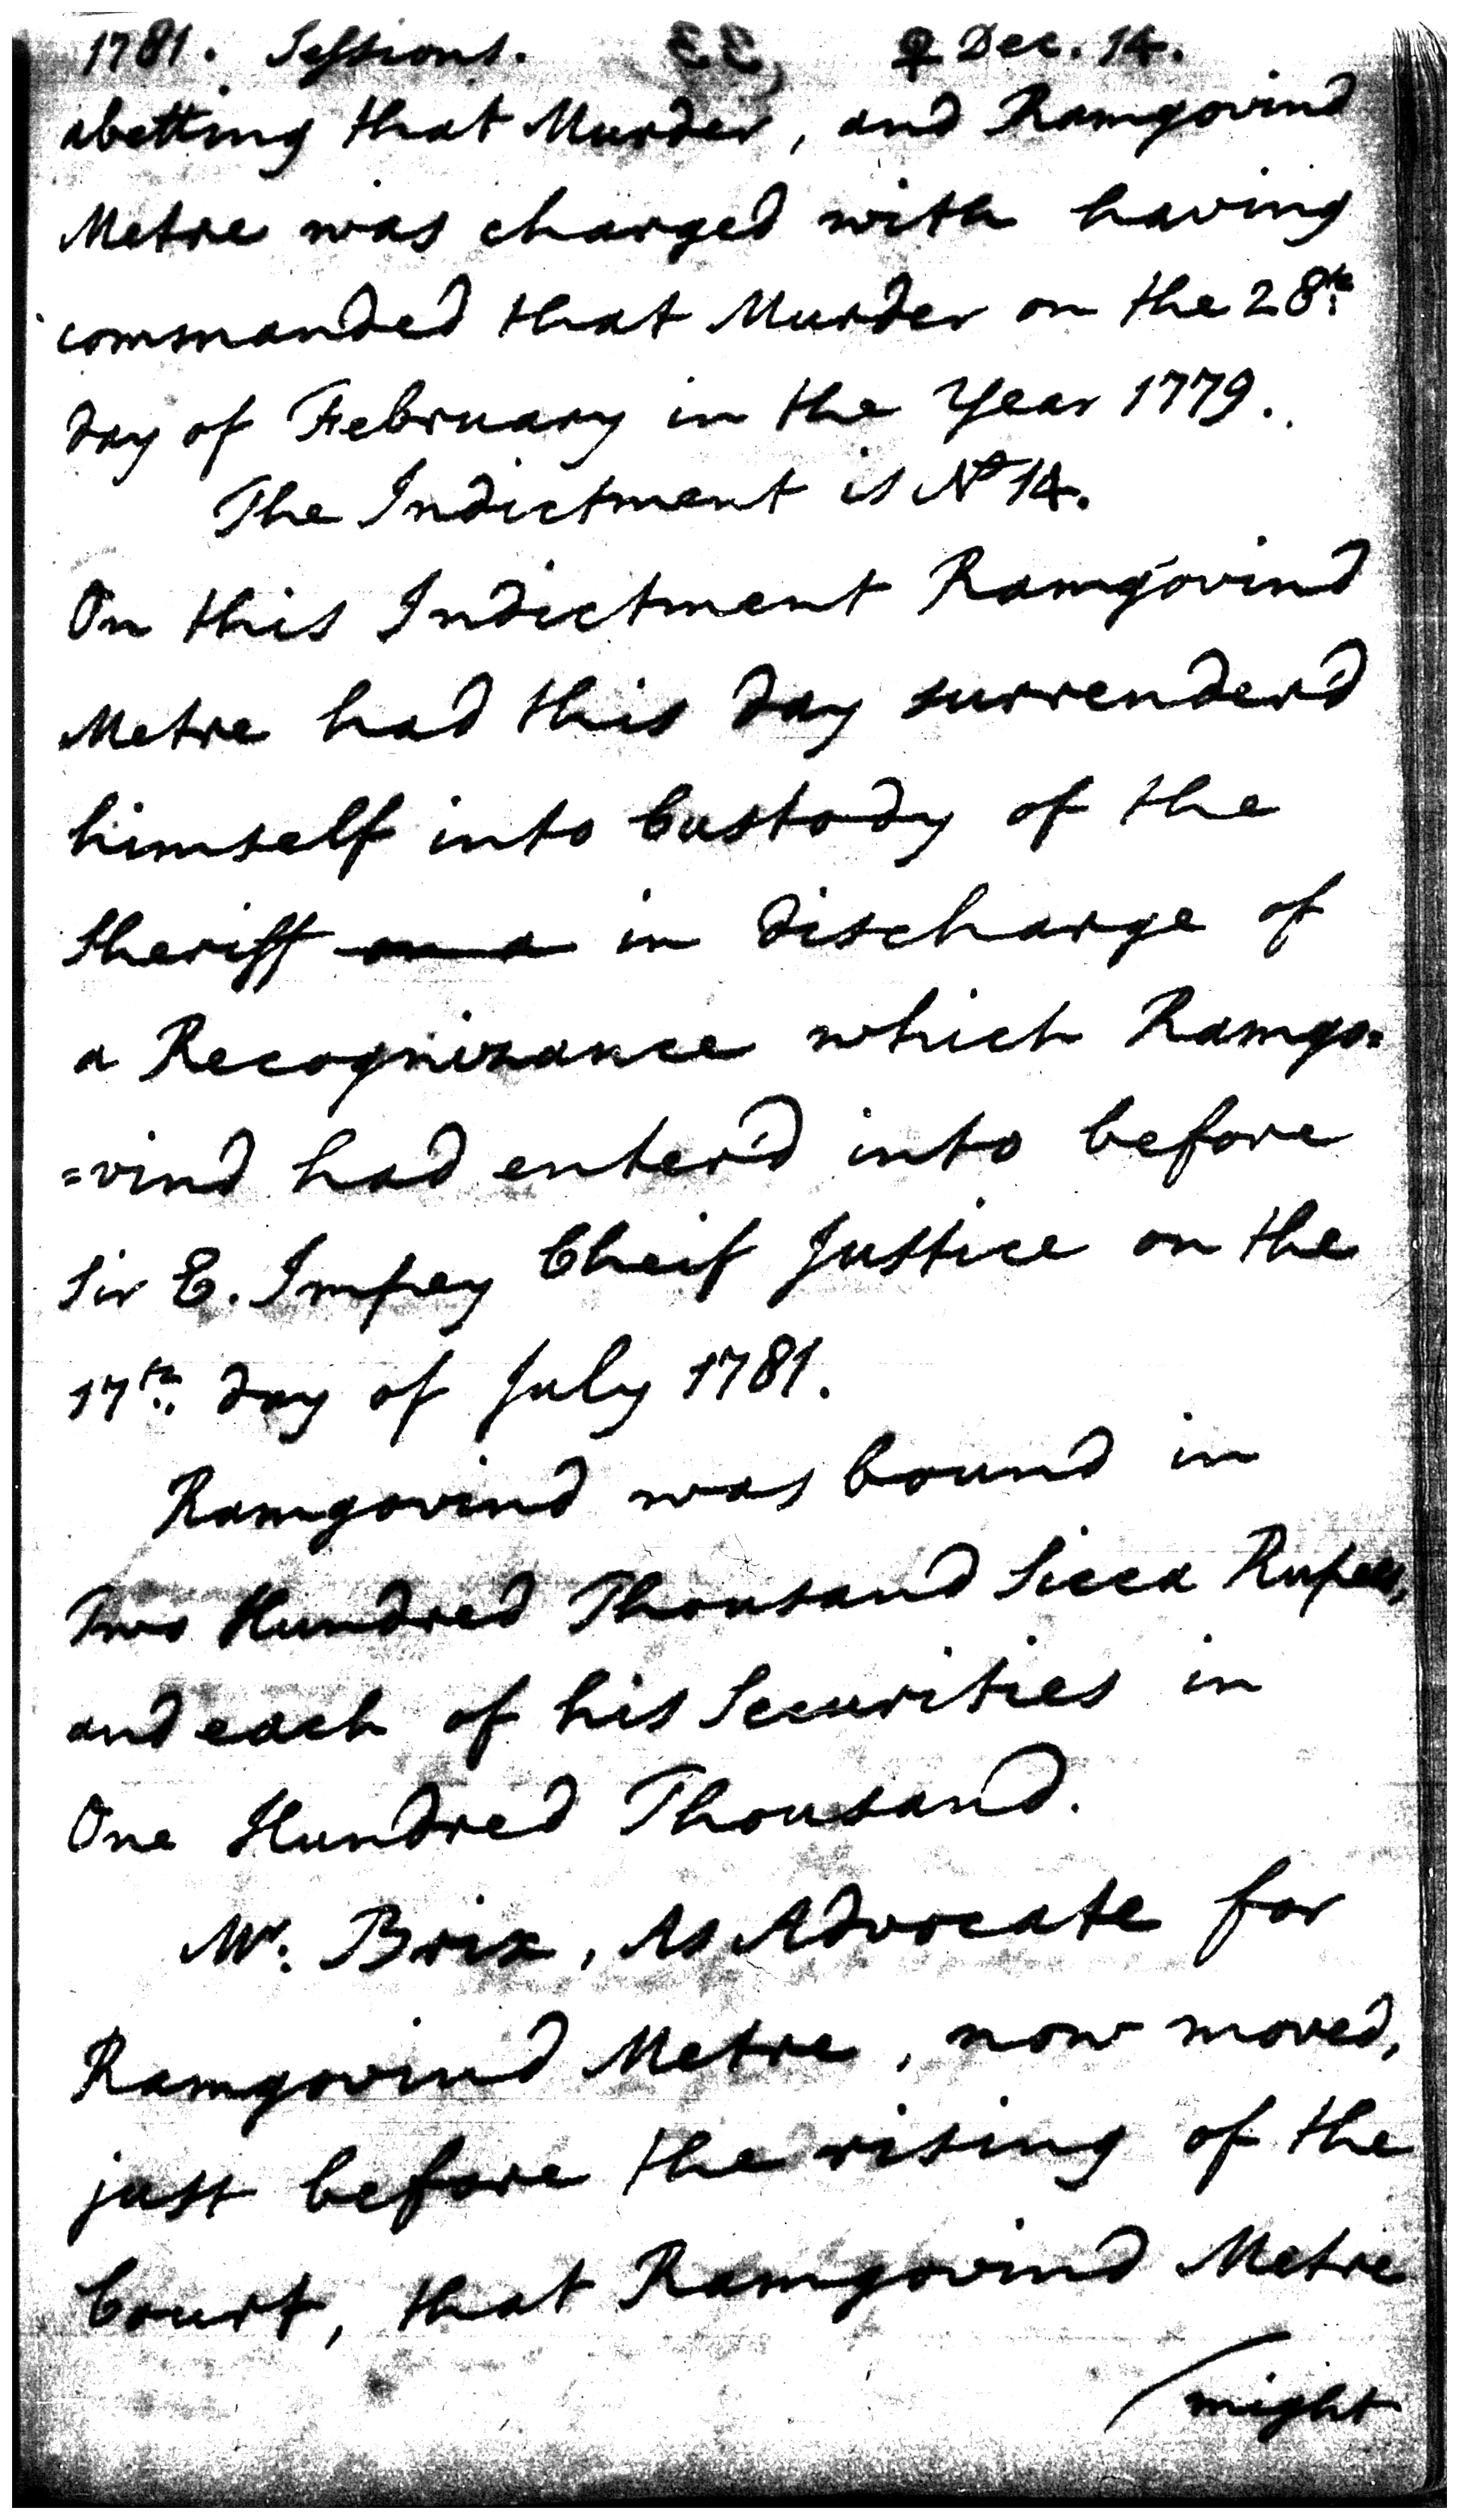 1781. Sessions. ♀ Dec. 14.
abetting that Murder, and Ramgovind
Metre was charged with having
commanded that Murder on the 28th
day of February in the Year 1779.
The Indictment is No 14.
On this Indictment Ramgovind
Metre had this day surrender'd
himself into Custody of the
Sheriff on a in discharge of
a Recognizance which Ramgo=
=vind had enter'd into before
Sir E. Impey Cheif Justice on the
17th. day of July 1781.
Ramgovind was bound in
Two Hundred Thousand Sicca Rupees,
and each of his Securities in
One Hundred Thousand.
Mr. Brix, As Advocate for
Ramgovind Metre, now moved,
just before the rising of the
Court, that Ramgovind Metre
might